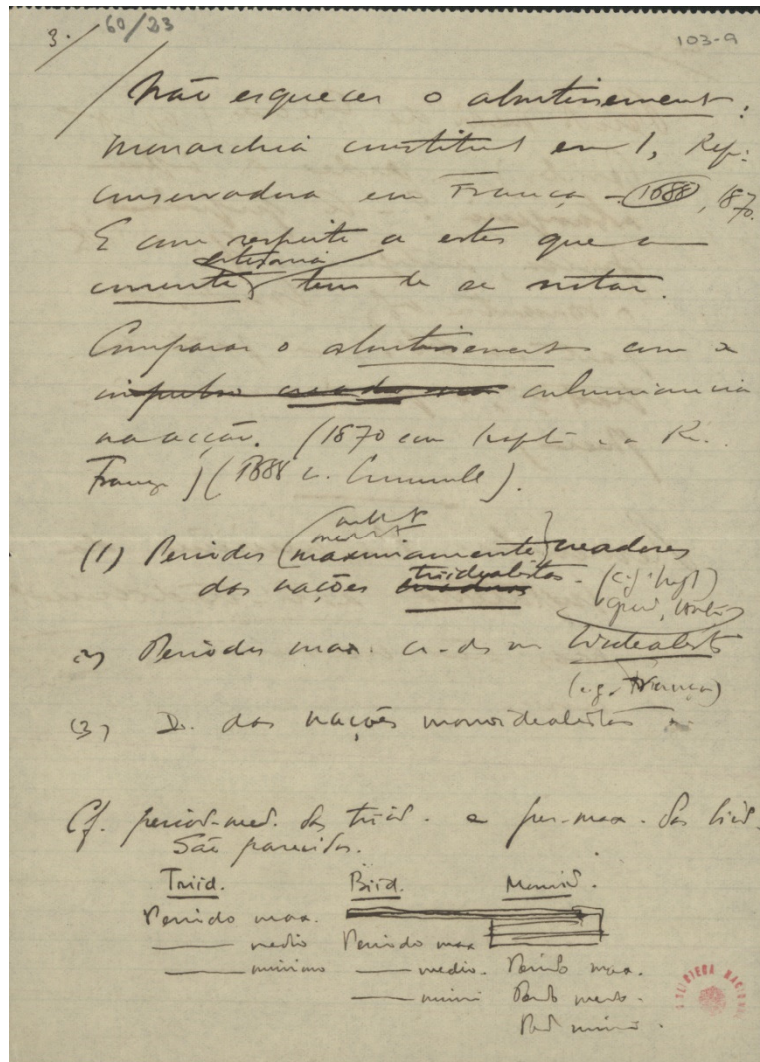 3.
60/23
103-9
Não esquecer o aboutissement:
Monarchia constituc em I, Rep.
conservadora em França – 1688, 1870.
E com respeito a estes que a
corrente tem de se notar.
Comparar o aboutissement com a culminancia
na acção. (1870 com
França) (1688 c. Cromwell).
(1) Periodos (maximamente) creadores
das nações triidealistas. (e.g. Ingl)
2) Periodos max. cr-ds ns biidealists
(e.g. França)
(3) D. das nações monoidealistas
Cf. period-med. das triid. e per-max. das biid.
São parecidos.
Triid. Biid. Monoid.
Periodo max.
—— medio Periodo max
—— minimo —— medio. Periodo max.
—— mini Perdo medo.
Perd mini.
BIBLIOTECA NACIONAL